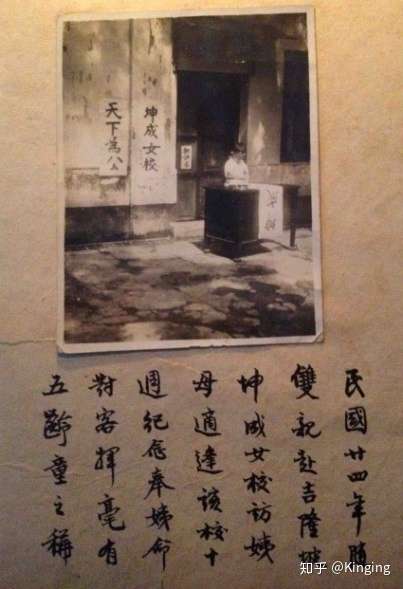 坤成女校
天下為公
民國廿四年随
雙親赴吉隆坡
坤成女校訪姨
母適逢該校十
週紀念奉姨命
對客揮毫有
五齡童之稱
知乎 @Kinging